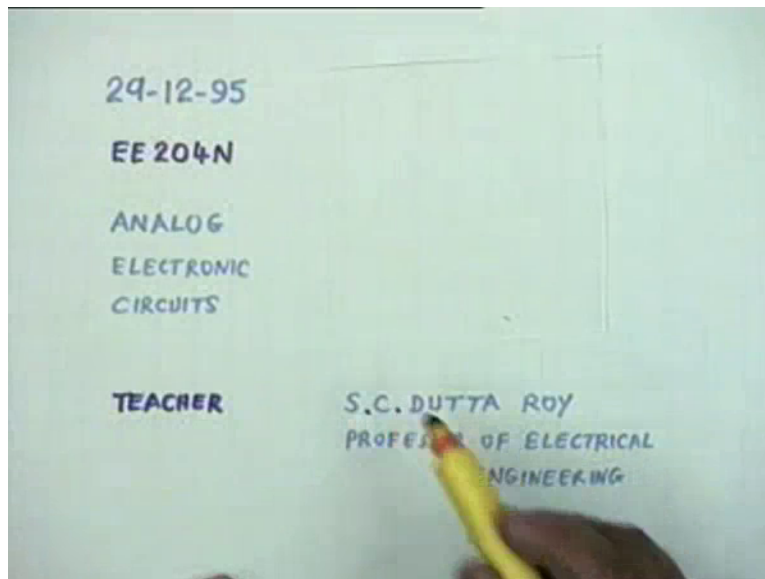 29-12-95
EE204N
ANALOG
ELECTRONIC
CIRCUITS
TEACHER S.C. DUTTA ROY
OF ELECTRICAL